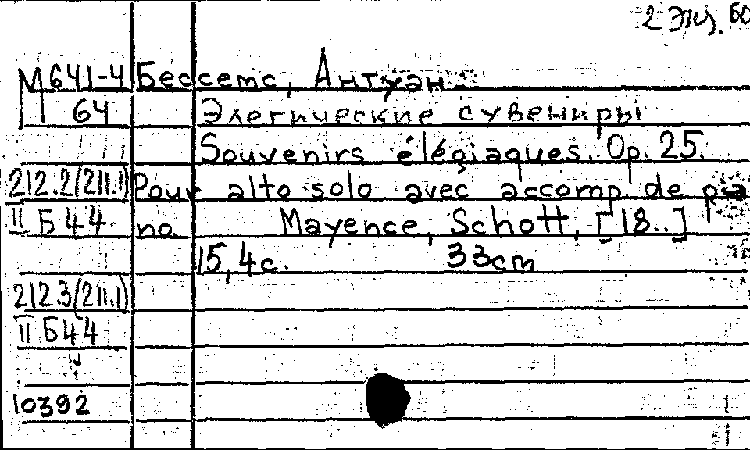 2 экз. БО
М641-4 Бессетс, Антуан.
64 Элегические сувениры
Souvenirs élégiaques. Op. 25.
212.2(211.1) Pour alto solo avec accomp. de pia
II Б 44 no Mayence, Schott, [18..]
15,4 с. 33cm
212.3(211.1)
II Б44
10392